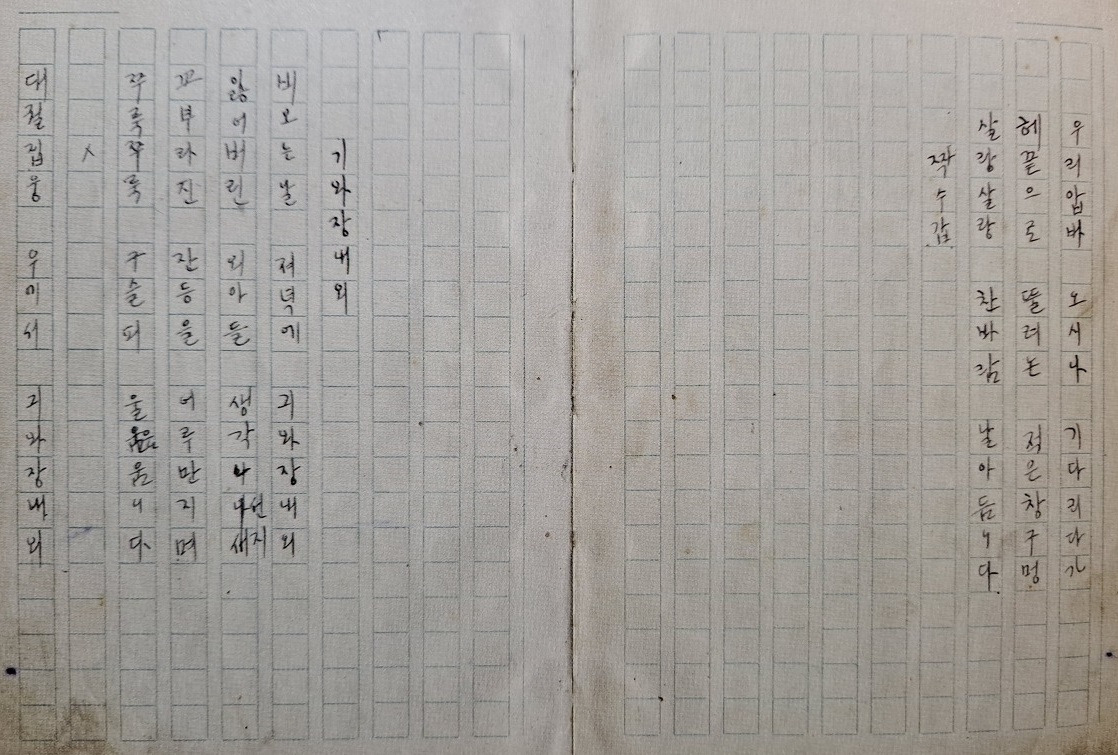 우리압바 오시나 기다리다가
헤끝으로 뚤려논 적은창구멍
살랑살랑 찬바람 날아듭니다
짝수갑
기와장내외
비오는날 저녁에 기와장내외
잃어버린 외아들 생각나선지
꼬부라진 잔등을 어루만지며
쭈룩쭈룩 구슬피 울음웁니다
×
대궐집웅 우에서 기와장내외